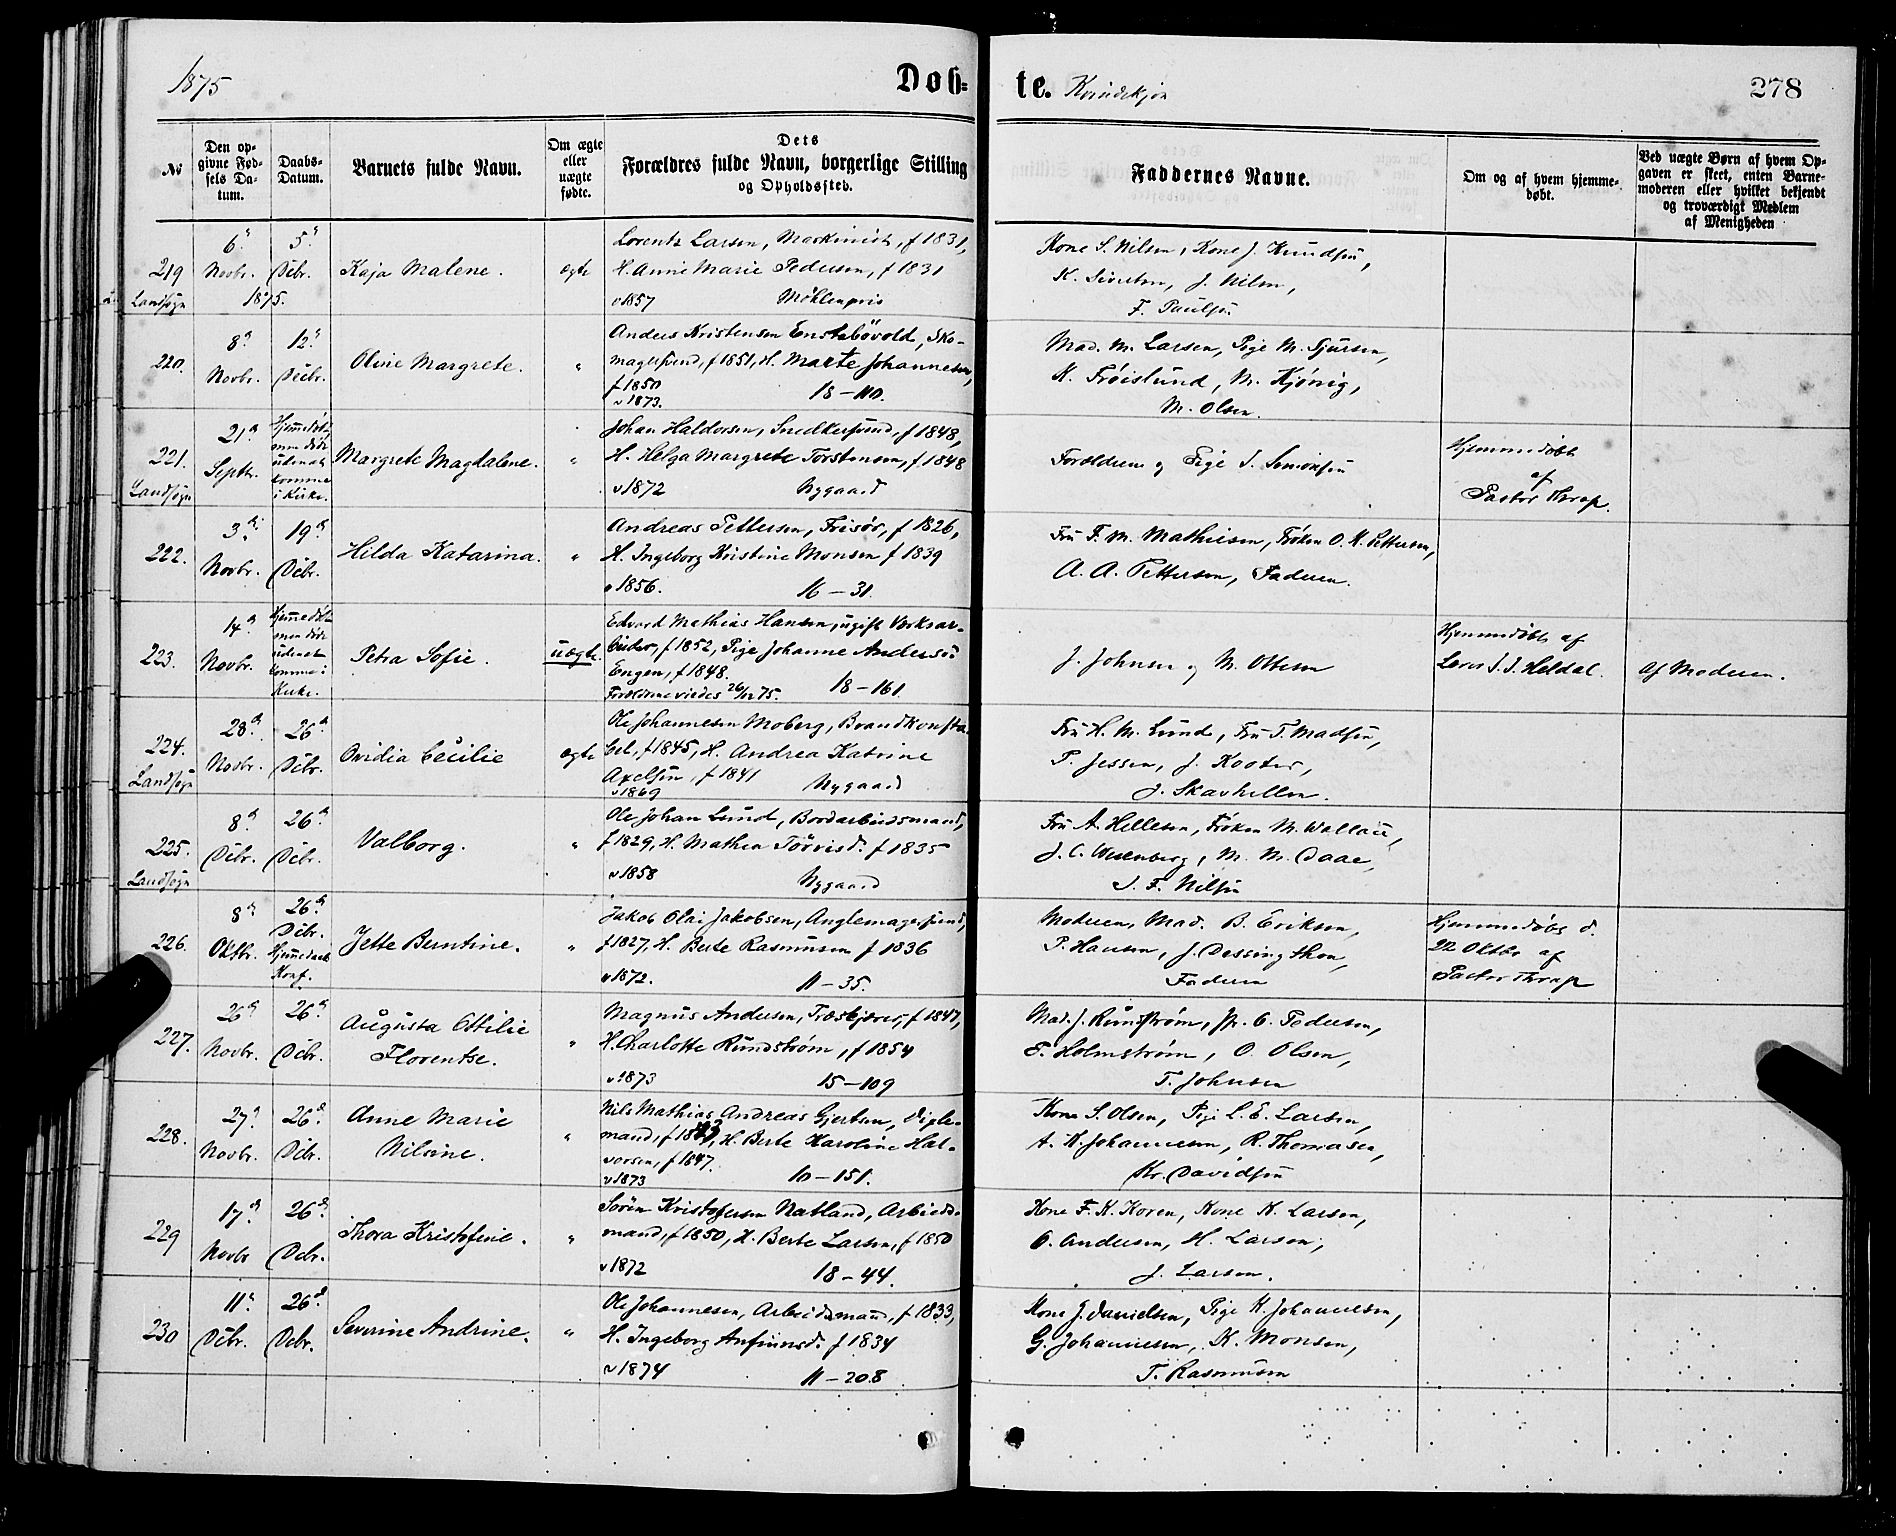 1875
Døb=
te. Kvindekjøn
278
No
Den op-
givne Fød-
sels Da-
tum.
Daabs-
Datum.
Barnets fulde Navn.
Om ægte
eller
uægte
fødte.
Dets
Forældres fulde Navn, borgerlige Stilling
og Opholdssted.
Faddernes Navne.
Om og af hvem hjemme-
døbt.
Ved uægte Børn af hvem Op-
gaven er skeet, enten Barne-
moderen eller hvilket bekjendt
og troværdigt Medlem
af Menigheden
219
Landsogn
6te
Novbr.
1875.
5te
Debr.
Kaja Malene.
ægte
Lorentz Larsen, Maskinist, f 1831,
H. Anne Marie Pedersen, f 1831
v 1857 Møhlenpris
Kone S. Nilsen, Kone J. Knudsen,
K. Sivertsen, J. Nilsen,
F. Paulsen
220.
8de
Novbr.
12te
Debr.
Oline Margrete.
"
Anders Kristensen Enstabøvold, Sko-
magersvend, f 1851, H. Marte Johannesen,
f 1850
v 1873. 18-110.
Mad. M. Larsen, Pige M. Sjursen,
K. Frøislund, M. Kjönig,
M. Olsen.
221.
Landsogn
21de
Septr.
Hjemmedøbt
men død
uden at
komme
i Kirke.
Margrete Magdalene.
"
Johan Haldorsen, Snedkersvend, f 1848,
H. Helga Margrete Torstensen, f 1848
v 1872 Nygaard
Forældrene og Pige S. Simonsen
Hjemmedøbt
af
Pastor Thrap.
222.
3die
Novbr.
19de
Debr.
Hilda Katarina.
"
Andreas Pettersen, Frisør, f 1826,
H. Ingeborg Kristine Monsen f 1839
v 1856. 16-31.
Fru F. M. Mathiesen, Frøken O. K. Pettersen,
A. A. Pettersen, Faderen.
223.
14de
Novbr.
Hjemmedøbt
men død
uden at
komme i
Kirke.
Petra Sofie.
uægte.
Edvard Mathias Hansen, ugift Verksar-
beider, f 1852, Pige Johanne Andersen
Engen, f 1848.
Forældrene viedes 26/12 75. 18-161.
J. Johnsen og M. Ottesen
Hjemmedøbt af
Lærer S. S. Heldal.
Af Moderen.
224.
Landsogn
28de
Novbr.
26de
Debr.
Ovidia Cecilie
ægte
Ole Johannesen Moberg, Brandkonsta-
bel, f 1845, H. Andrea Katrine
Axelsen, f 1841
v 1869 Nygaard
Fru H. M. Lund, Fru T. Madsen,
P. Jessen, J. Kooter,
J. Skavhellen.
225.
Landsogn
8de
Debr.
26de
Debr.
Valborg.
"
Ole Johan Lund, Bordarbeidsmand,
f 1829, H. Mathea Törrisd. f 1835
v 1858 Nygaard
Fru A. Hellesen, Frøken M. Wallace,
J. C. Wesenberg, M. M. Daae,
S. F. Nilsen
226.
8de
Oktbr.
26de
Debr.
Hjemmedaab
Konf.
Jette Berntine.
"
Jakob Olai Jakobsen, Anglemagersvend,
f 1827, H. Berte Rasmussen f 1836
v 1872. 11-35.
Moderen, Mad. B. Eriksen,
P. Hansen, J. Dessingthon,
Faderen
Hjemmedøbt d.
22 Oktbr af
Pastor Thrap
227.
26de
Novbr.
26de
Debr.
Augusta Ottilie
Florentse.
"
Magnus Andersen, Træskjærer, f 1847,
H. Charlotte Rundstrøm, f 1854
v 1873 15-109
Mad. J. Rundstrøm, Jfr. C. Pedersen,
E. Holmstrøm, O. Olsen,
T. Johnsen
228.
27de
Novbr.
26de
Debr.
Anne Marie
Nilsine.
"
Nils Mathias Andreas Gjertsen,
mand, f 1849, H. Berte Karoline Hal-
vorsen, f 1847.
v 1873 10-151.
Kone S. Olsen, Pige L. E. Larsen,
A. K. Johannesen, R. Thomasen,
Kr. Davidsen
229
17de
Novbr
26de
Debr.
Thora Kristofine.
"
Sören Kristofersen Natland, Arbeids-
mand, f 1850, H. Berte Larsen, f 1850
v 1872 18-44.
Kone F. K. Koren, Kone K. Larsen,
O. Andersen, H. Larsen,
J. Larsen.
230
11te
Debr.
26de
Debr.
Severine Andrine.
"
Ole Johannesen, Arbeidsmand, f 1833,
H. Ingeborg Anfinnsd. f 1834
v 1874 11-208.
Kone J. Danielsen, Pige K. Johannesen,
G. Johannesen, K. Monsen,
T. Rasmussen